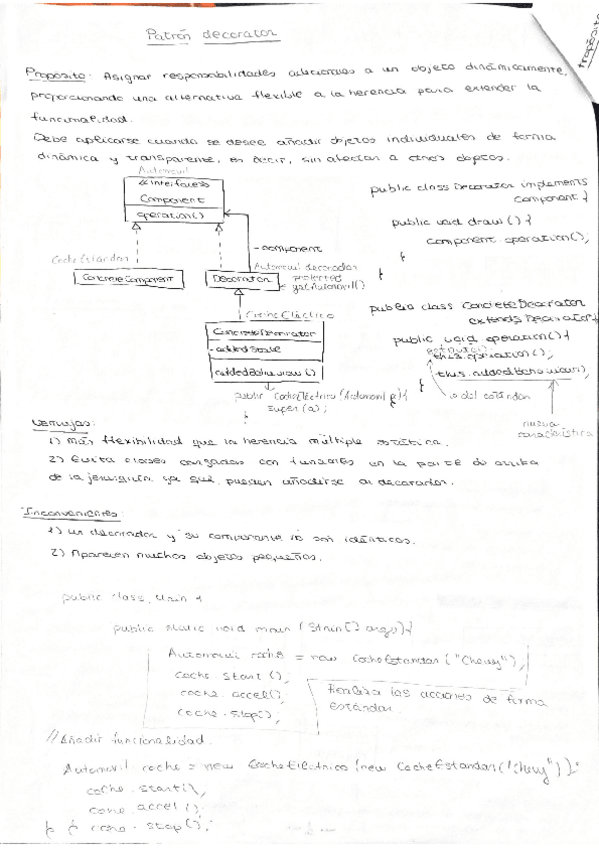 Patrón decorator
Propósito
Propósito: Asignar responsabilidades adicionales a un objeto dinámicamente,
proporcionando una alternativa flexible a la herencia para extender la
funcionalidad.
Debe aplicarse cuando se desee añadir objetos individuales de forma
dinámica y transparente, es decir, sin afectar a otros objetos.
Automovil
<<interface>>
Component
operation()
- component
CocheEstandar
ConcreteComponent
Automovil decorador
Decorator
protected
getAutomovil()
CocheEléctrico
ConcreteDecorator
- addedState
addedBehaviour()
public CocheEléctrico (Automovil a){
super(a);
public class Decorator implements
Component {
public void draw() {
component.operation();
}
}
public class ConcreteDecorator
extends Decorator {
public void operation(){
this.operation();
this.addedBehaviour();
}
}
lo del estándar
nueva
característica
Ventajas:
1) más flexibilidad que la herencia múltiple estática.
2) Evita clases cargadas con funciones en la parte de arriba
de la jerarquía, ya que pueden añadirse al decorador.
Inconvenientes:
1) un decorador y su componente no son idénticos.
2) Aparecen muchos objetos pequeños.
public class Main {
public static void main (String[] args){
Automovil coche = new CocheEstandar ("Chevy");
coche.start();
coche.accel();
coche.stop();
Realiza las acciones de forma
estándar.
// Añadir funcionalidad.
Automovil coche = new CocheEléctrico (new CocheEstandar("Chevy"));
coche.start();
coche.accel();
} } coche.stop();